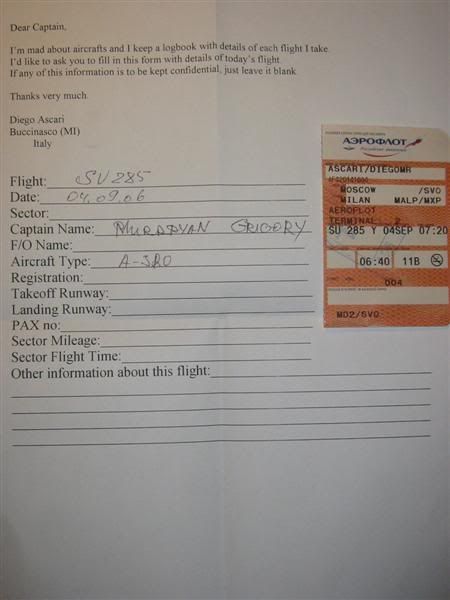 Dear Captain,
I'm mad about aircrafts and I keep a logbook with details of each flight I take.
I'd like to ask you to fill in this form with details of today's flight.
If any of this information is to be kept confidential, just leave it blank.
Thanks very much.
Diego Ascari
Buccinasco (MI)
Italy
Flight: SU 285
Date: 04.09.06
Sector:
Captain Name: MURADYAN GRIGORY
F/O Name:
Aircraft Type: A-320
Registration:
Takeoff Runway:
Landing Runway:
PAX no:
Sector Mileage:
Sector Flight Time:
Other information about this flight:
АЭРОФЛОТ
ASCARI/DIEGOMR
MOSCOW /SVO
MILAN MALP/MXP
AEROFLOT
TERMINAL 2
SU 285 Y 04SEP 07:20
06:40 11B
004
MD2/SVO